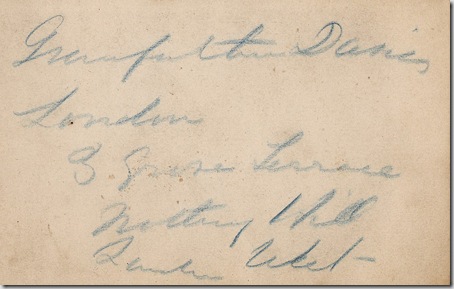 Davies
London
3 Grove Terrace
Notting Hill
London West